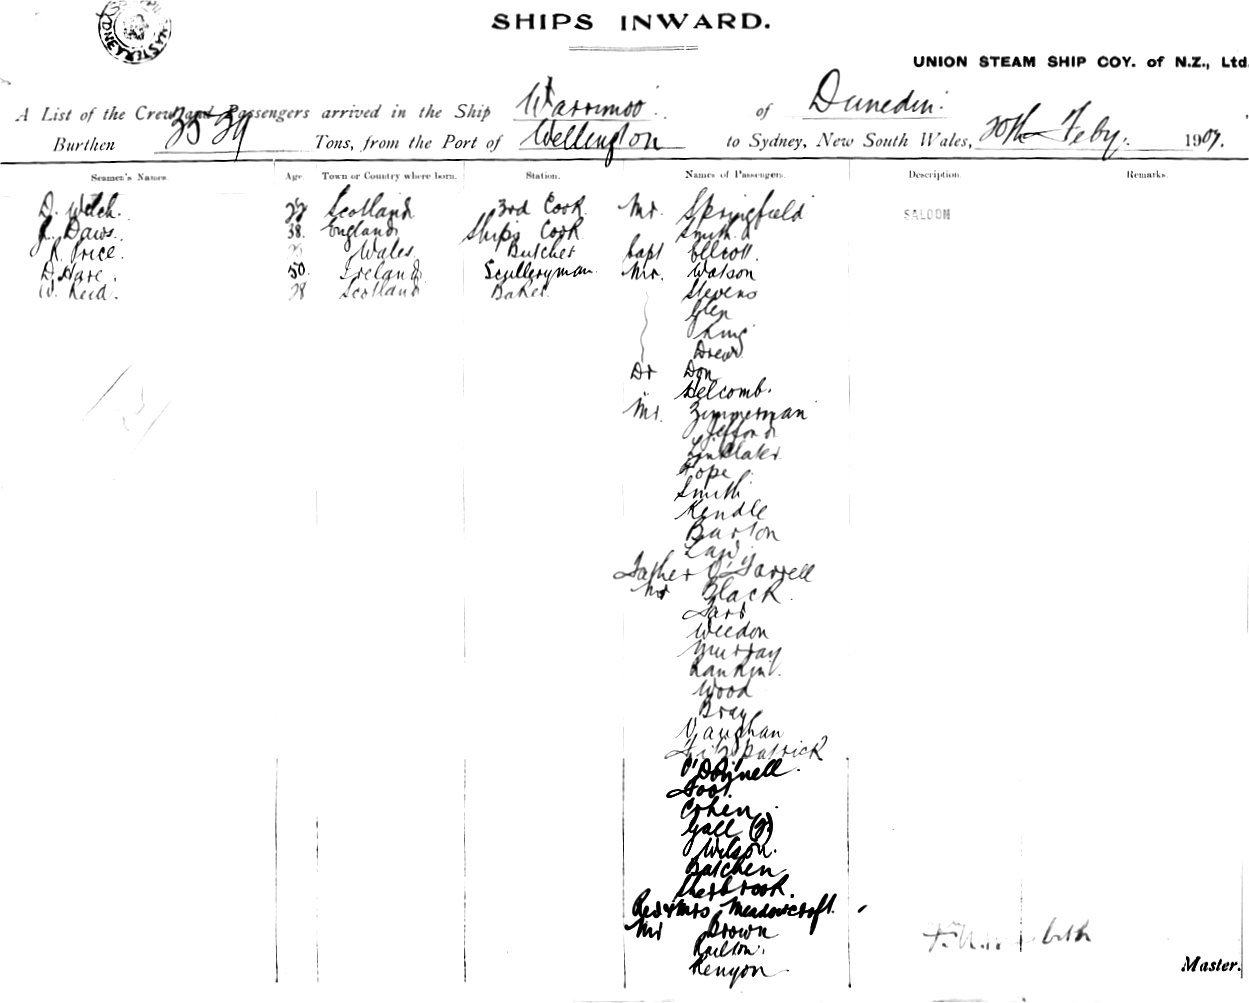 SHIPS INWARD.
UNION STEAM SHIP COY. of N.Z., Ltd
A List of the Crew and Passengers arrived in the Ship Warrimoo of Dunedin
Burthen 3529 Tons, from the Port of Wellington to Sydney, New South Wales, 20th Feby. 1907.
Seamen's Names. Age. Town or Country where born. Station. Names of Passengers. Description. Remarks.
D. Welch. Scotland 3rd Cook Mr. Springfield SALOON
Daws. 38. England Ship's Cook Smith
Price. Wales Butcher Capt Ellcott.
D. Hare. 50. Ireland Sculleryman Mr. Watson
W. Reid. 28 Scotland Baker. Stevens
Glen
King
Drew
Dr Don
Helcomb.
Mr. Zimmerman
Linklater
Pope
Smith
Kendle
Burton
Law
Father O'Farrell
Mr Black
Weedon
Murray
Rankin.
Wood
Bray
Vaughan
Fitzpatrick
O'Donnell.
Foot.
Cohen
Gall (J.)
Wilson.
Batchen
Sherbrook.
Rev & Mrs Meadowcroft.
Mr Brown
Railton.
Kenyon
Master.